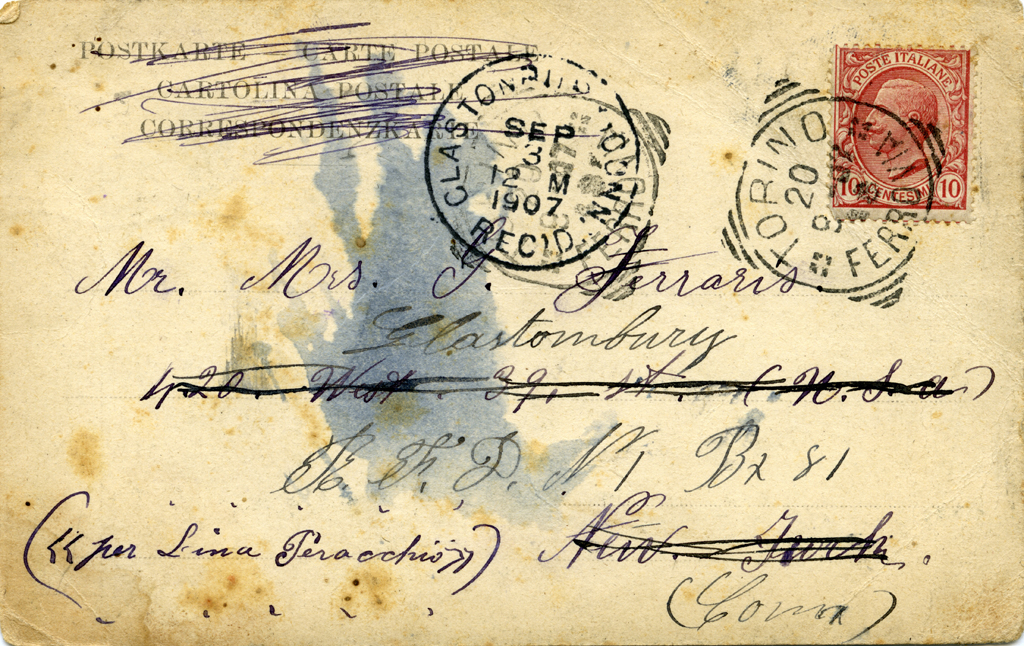 POSTKARTE CARTE POSTALE
CARTOLINA POSTALE
CORRESPONDENZKARTE
POSTE ITALIANE
10 CENTESIMI 10
TORINO FERROVIA
20
9
GLASTONBURY CONN.
SEP
3
12 M
1907
REC'D.
Mr. Mrs. J. Ferraris.
Glastombury
420. West. 39. st. (N. S. a)
R. F. D. N 1 Bx 81
(«per Lina Peracchio») New. Jork.
(Conn)